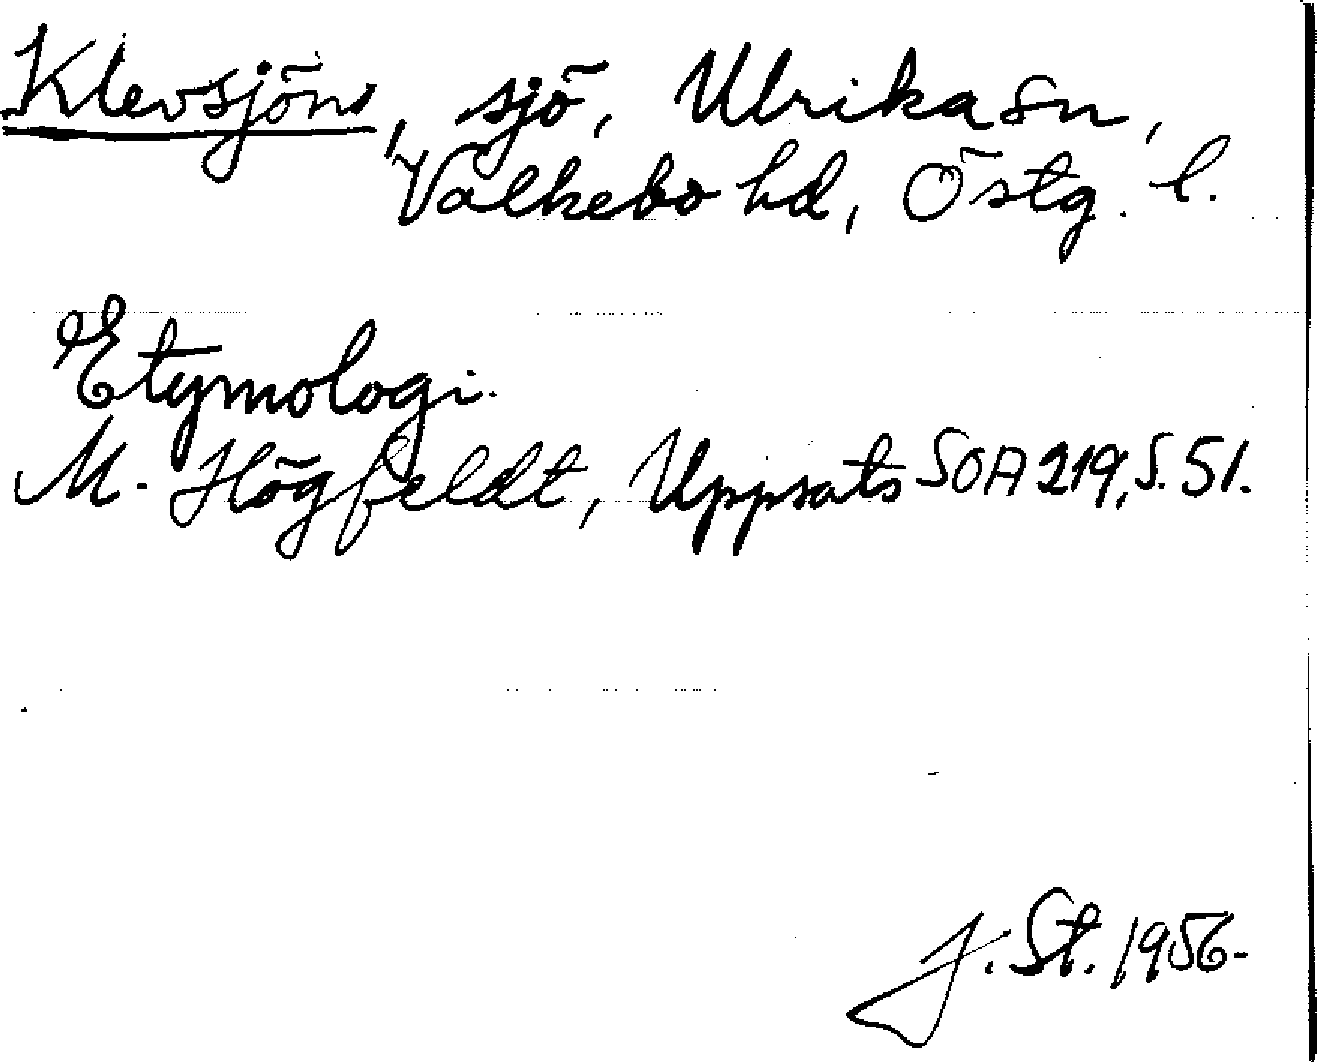 Klevsjön, sjö, Ulrika sn,
Valkebo hd, Östg. l.
Etymologi.
M. Högfeldt, Uppsats SOA 219, s. 51.
J. St. 1956.